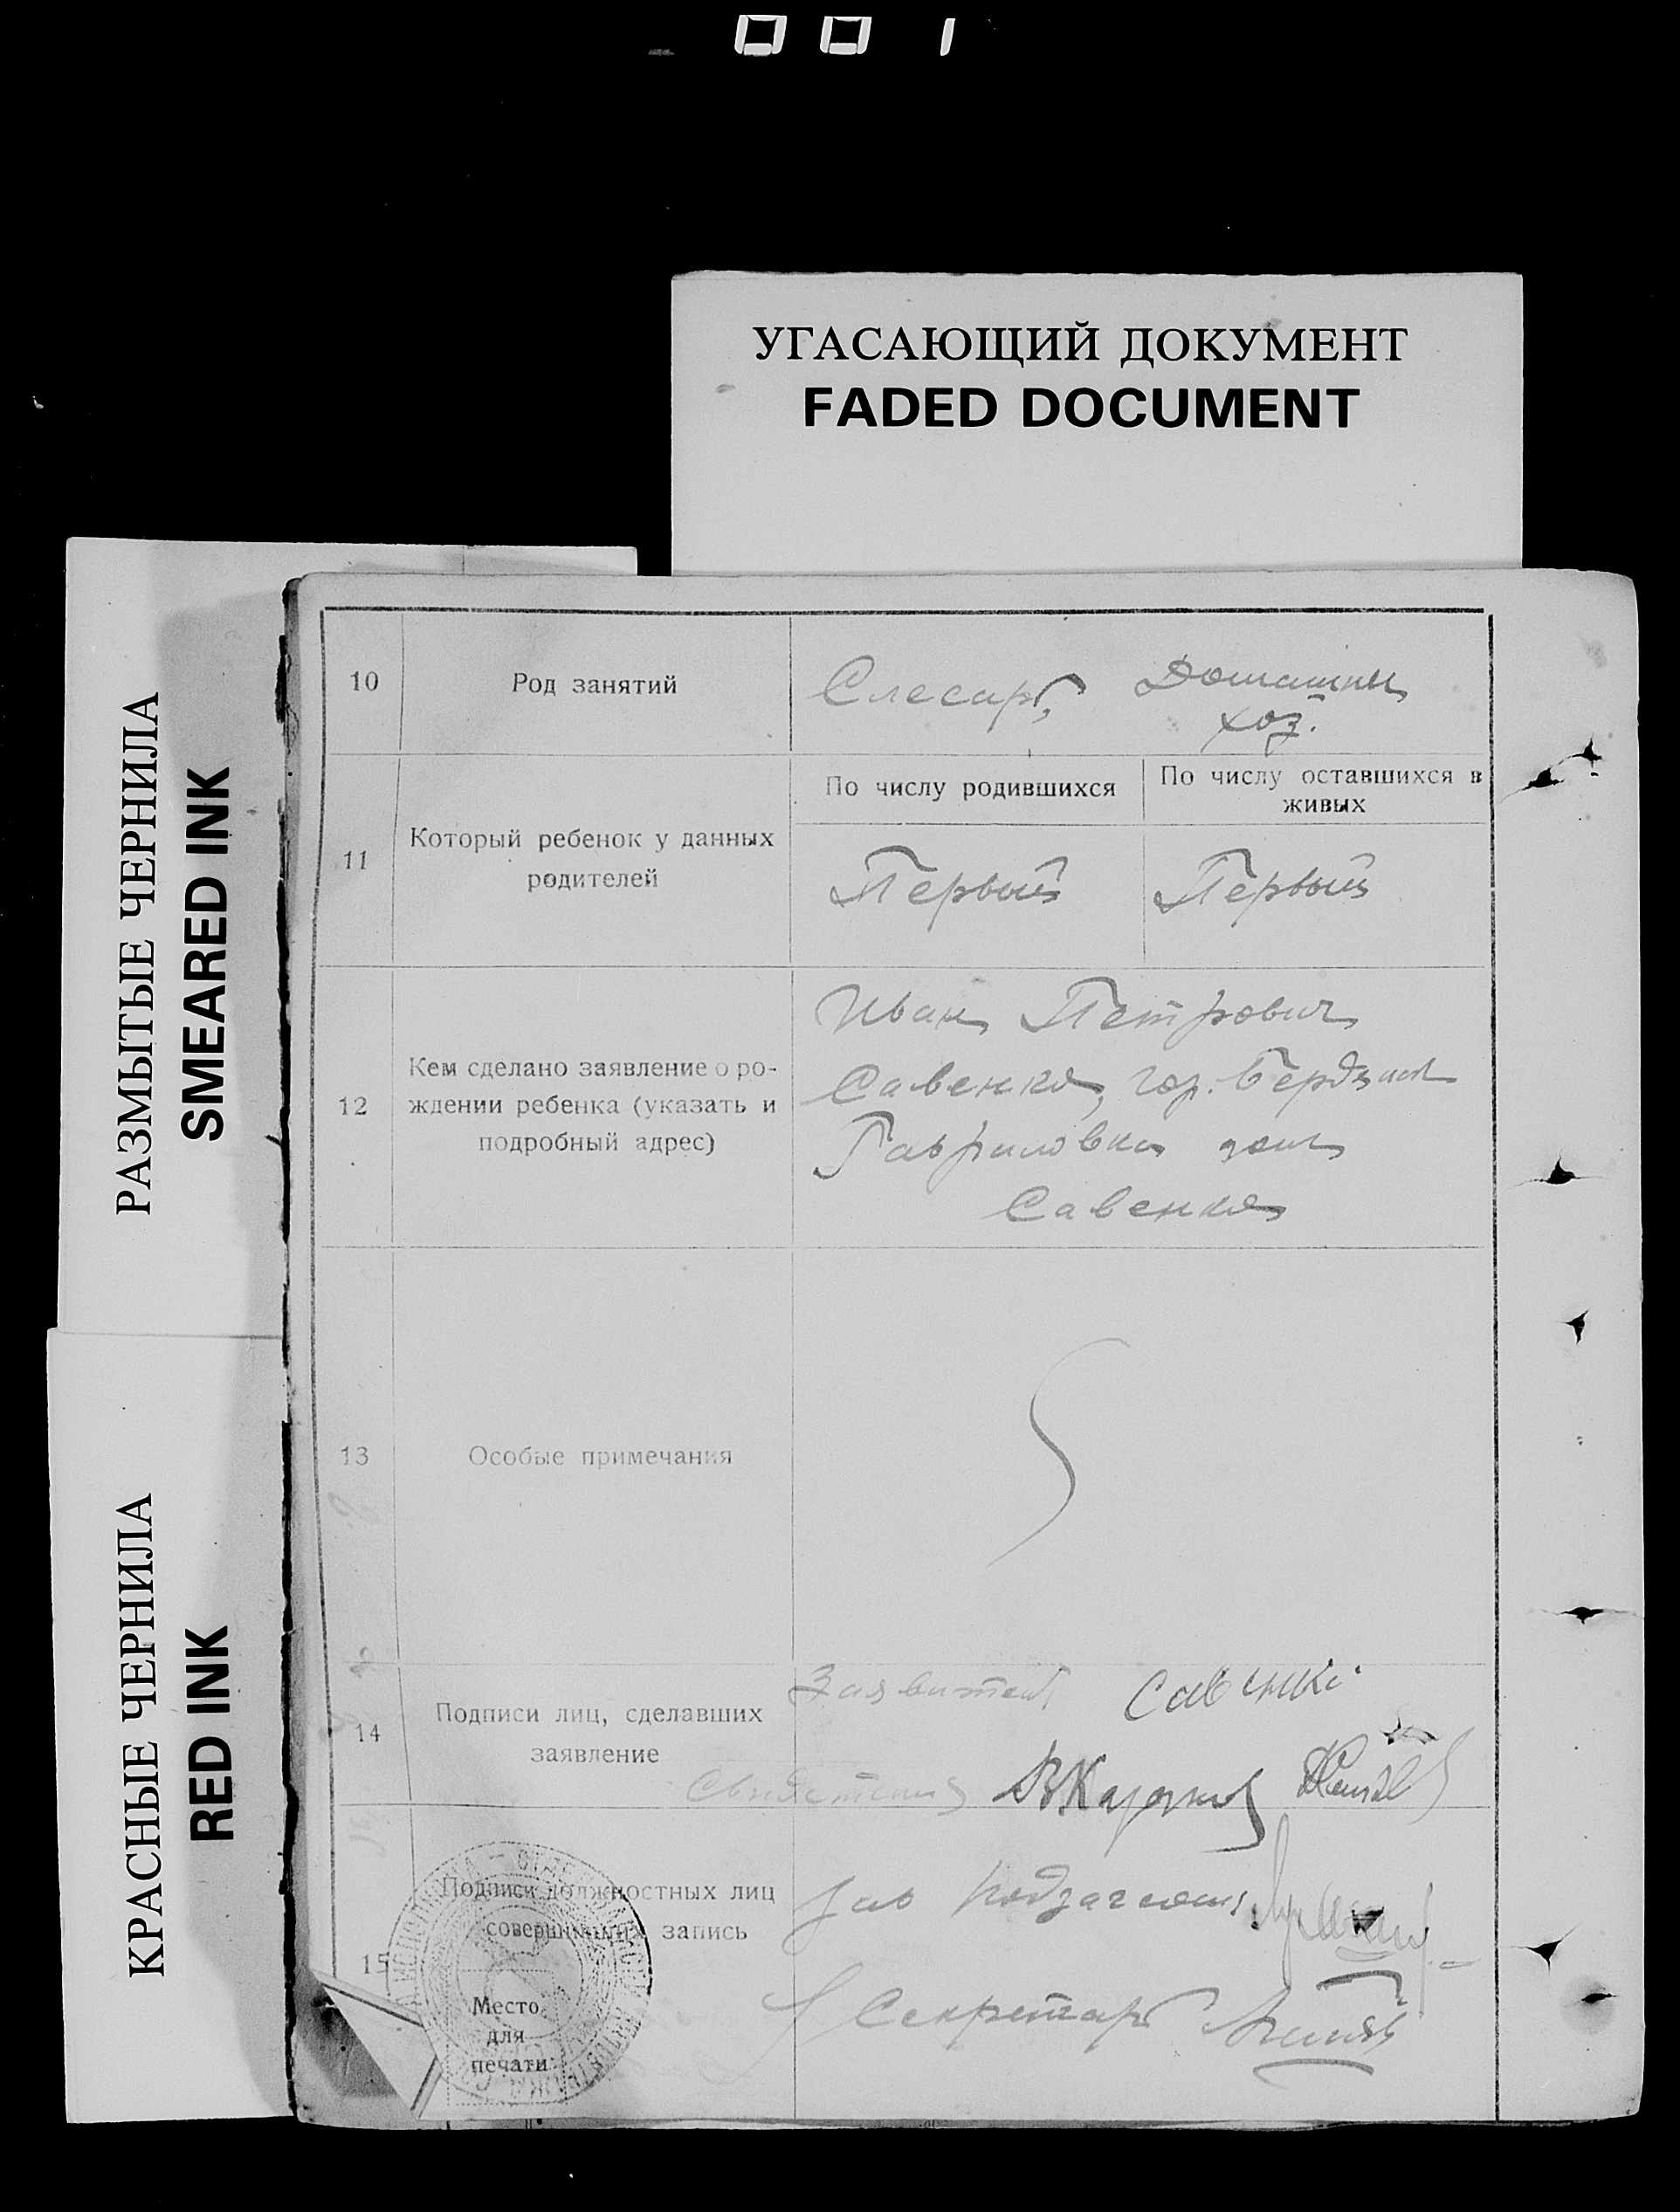 001
УГАСАЮЩИЙ ДОКУМЕНТ
FADED DOCUMENT
РАЗМЫТЫЕ ЧЕРНИЛА
SMEARED INK
КРАСНЫЕ ЧЕРНИЛА
RED INK
10 Род занятий Слесарь, Домашн.
хоз.
По числу родившихся По числу оставшихся в
живых
11 Который ребенок у данных
родителей
Первый Первый
12 Кем сделано заявление о ро-
ждении ребенка (указать и
подробный адрес)
Иван Петрович
Савенко, гор. Бердянск
Гавриловка дом
Савенко
13 Особые примечания
14 Подписи лиц, сделавших
заявление
Заявитель Савенко
Свидетели
15 Подписи должностных лиц
совершивших запись
Зав
Секретарь
Место
для
печати